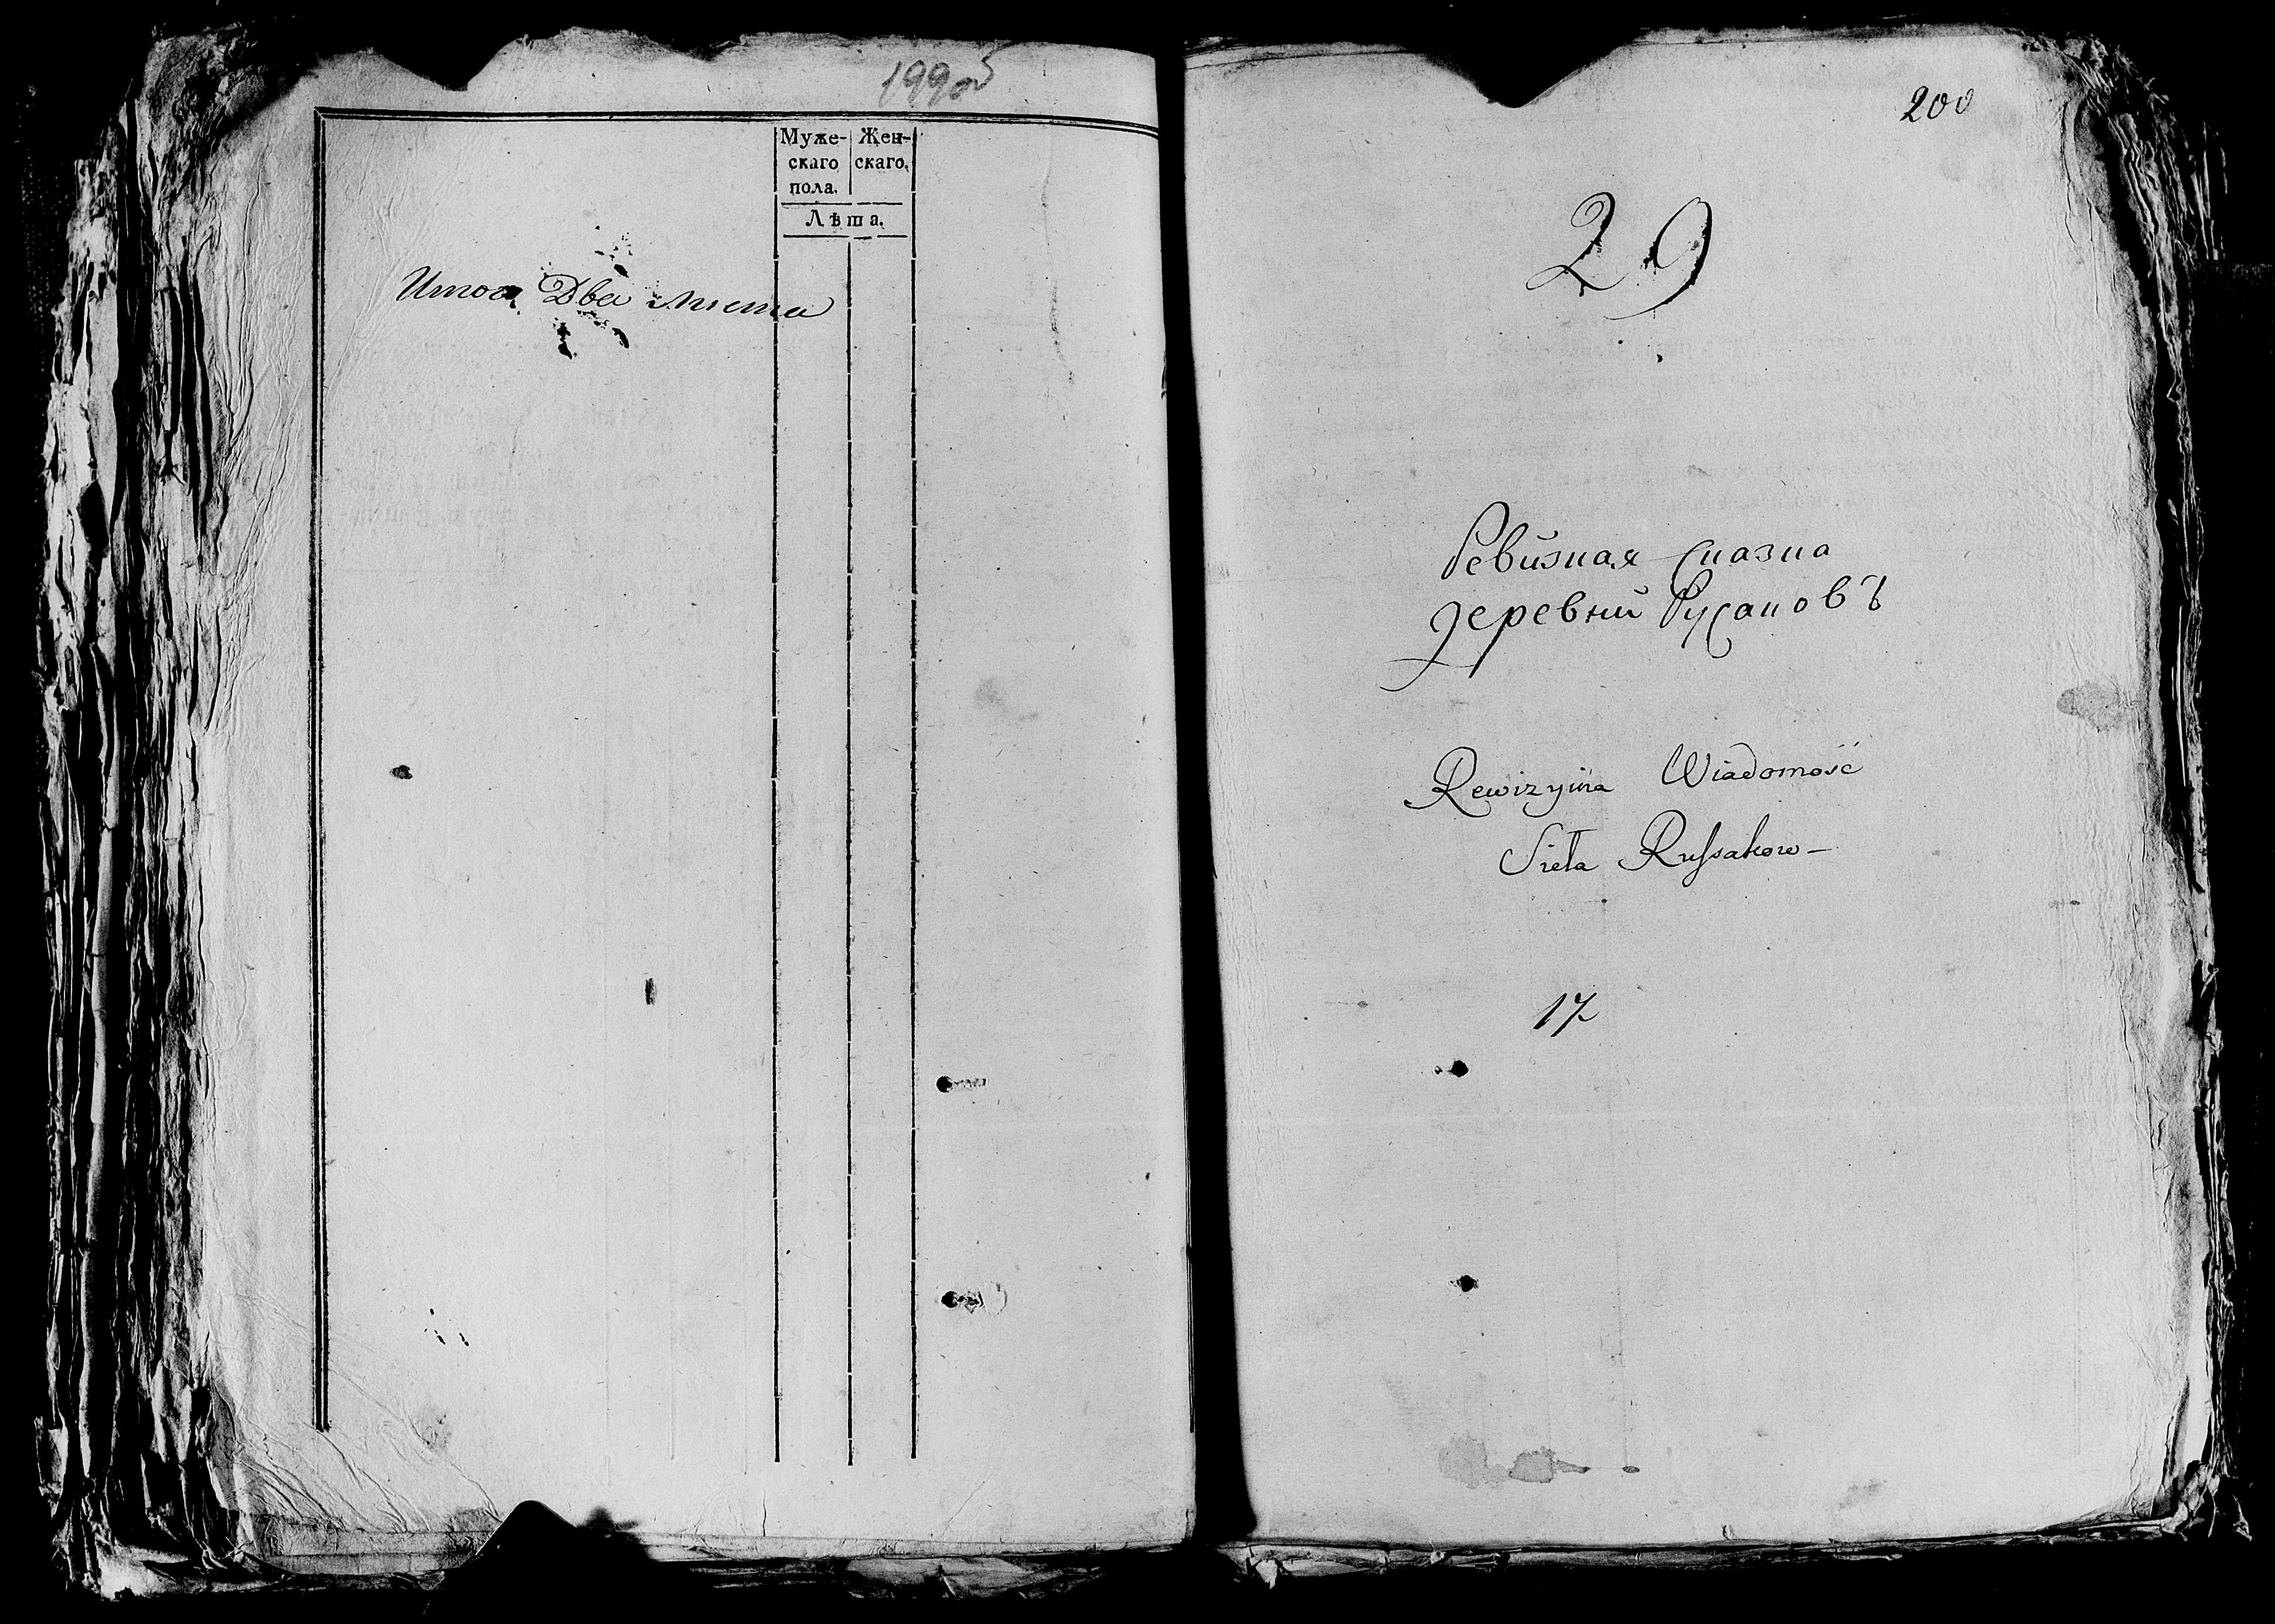 199об
Муже- Жен-
скаго скаго.
пола.
Лѣта.
Итого Два листа
200
29
Ревизная Сказка
деревни Русаковъ
Rewizyina Wiadomość
Sieła Russakow-
17